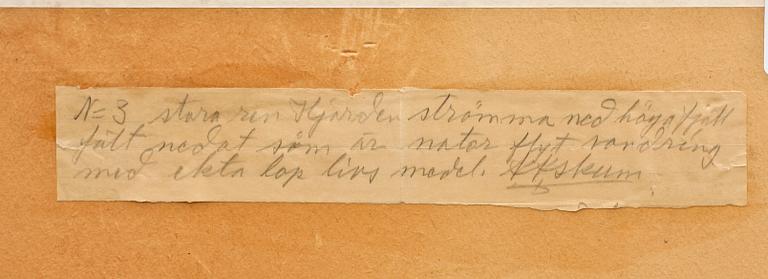 N=3 stora ren Hjorden strömma ned höga fjäll
fält nedat som är natør flyt vandring
med ekta lap livs model. Skum